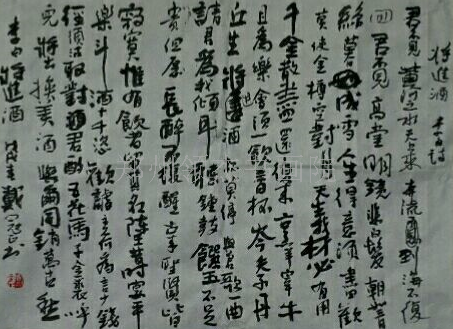 将進酒 李白詩
君不見黄河之水天上来奔流到海不復
回君不見高堂明鏡悲白髮朝如青
絲暮成雪人生得意須盡歡
莫使金樽空對月天生我材必有用
千金散盡還復来烹羊宰牛
且為樂會須一飲三百杯岑夫子丹
丘生將進酒杯莫停與君歌一曲
請君為我傾耳聽鐘鼓饌玉不足
貴但願長醉不復醒古来聖賢皆
寂寞惟有飲者留其名陳王昔時宴平
樂斗酒十千恣歡謔主人何為言少錢
徑須沽取對君酌五花馬千金裘呼
兒將出換美酒與爾同銷萬古愁
李白將進酒 戴冠